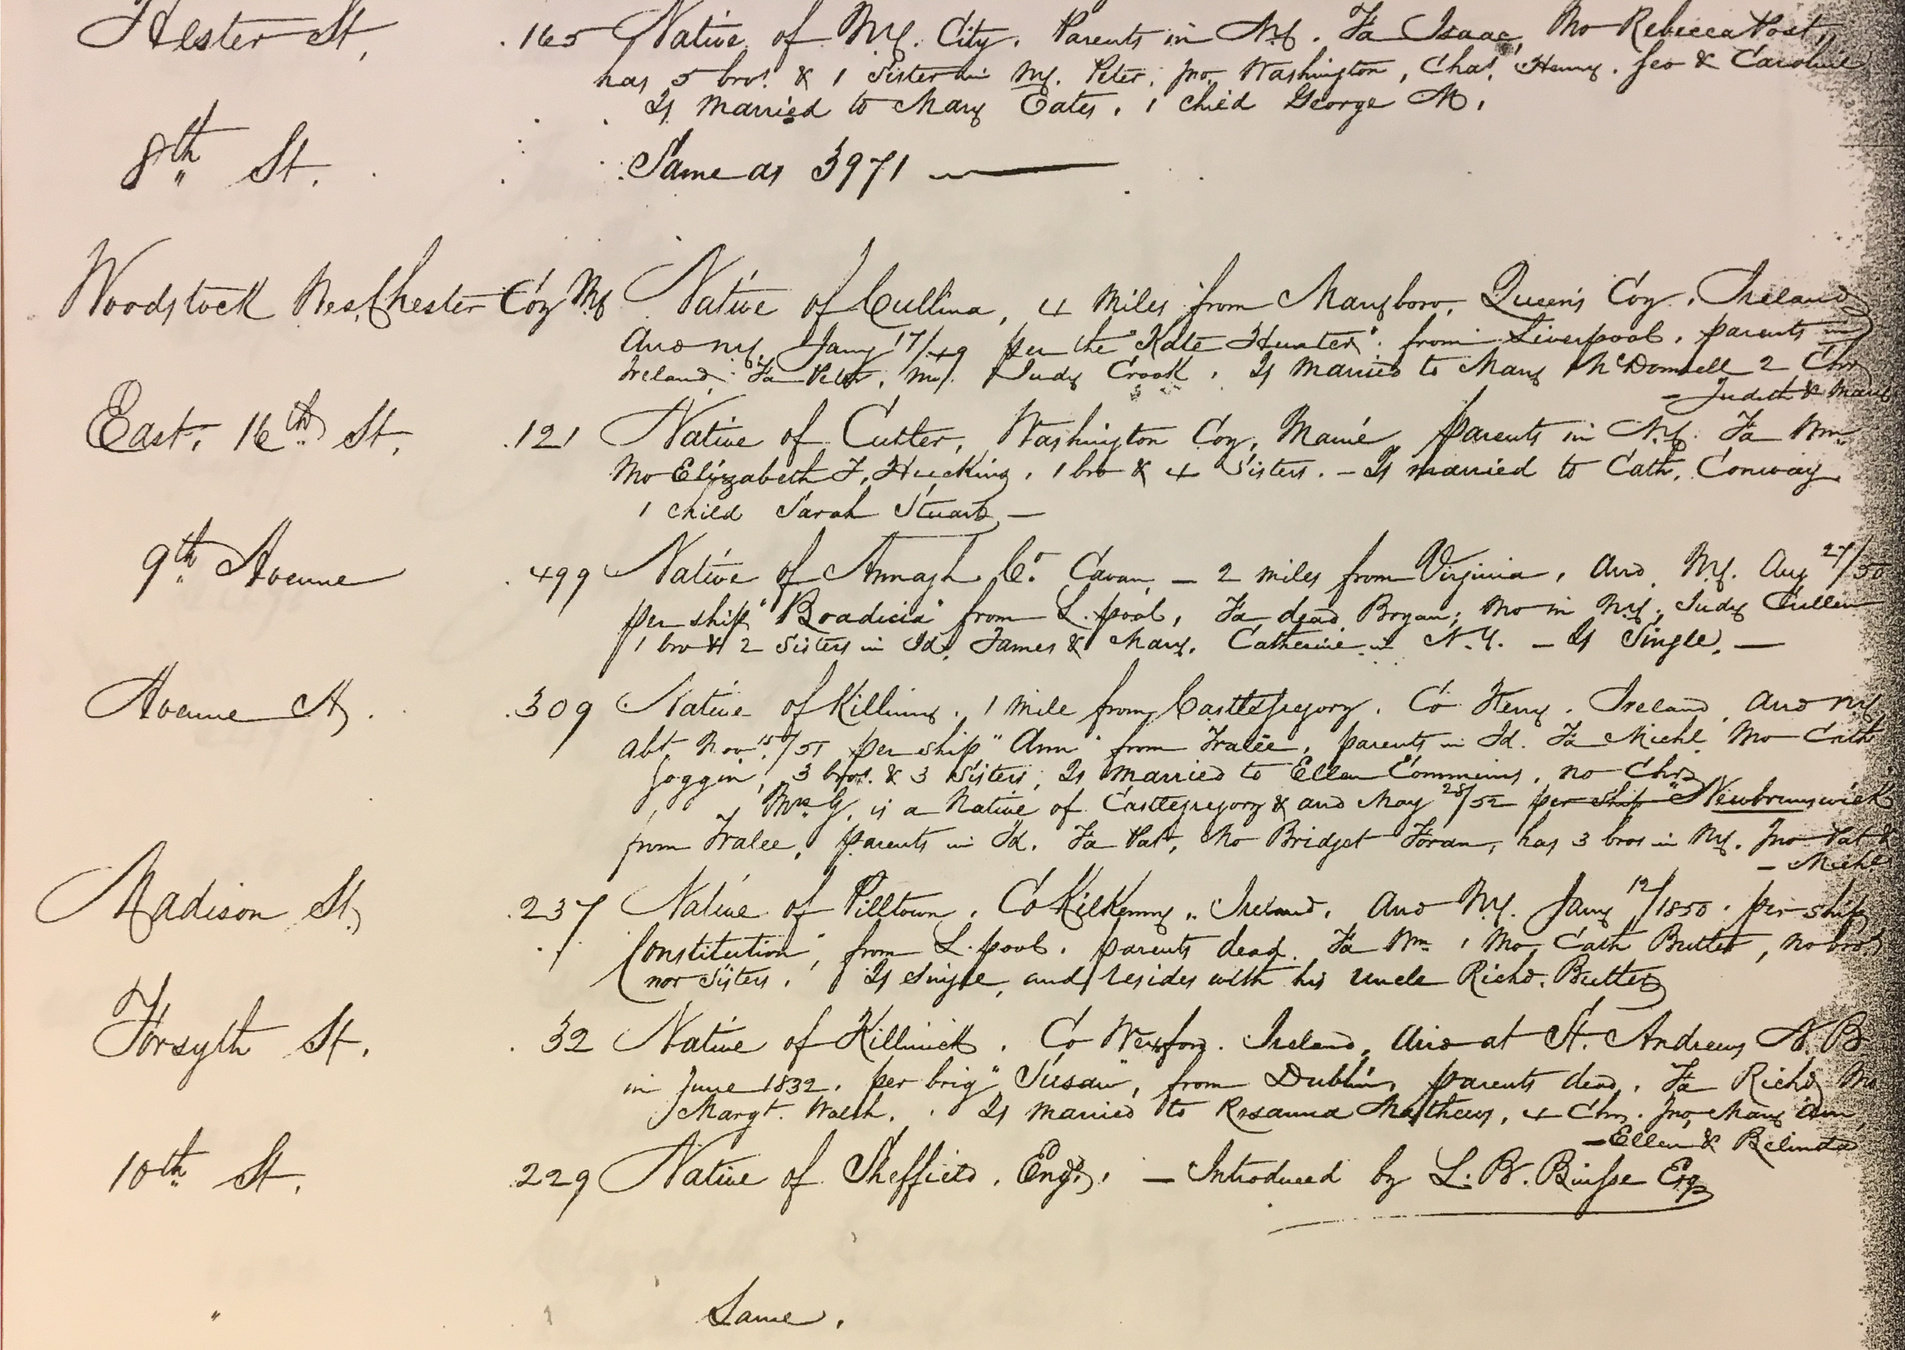 Hester St. 165 Native of NY. City. Parents in NY. Fa Isaac, Mo Rebecca Post,
has 5 bros. & 1 Sister in NY. Peter, Jno. Washington, Chas. Henry. Geo & Caroline
Is married to Mary Eates, 1 child George M.
8th St. Same as 3971
Woodstock West Chester Coy NY Native of Cullina, 4 miles from Maryboro, Queen's Coy. Ireland
Arrd NY. Jany 17/49 per the "Kate Hunter" from Liverpool. parents in
Ireland, Fa Peter, Mo. Judy Crook. Is married to Mary McDonnell 2 Chn
- Judith & Mary
East. 16th St. 121 Native of Cutler, Washington Coy, Maine, parents in NY. Fa Wm
Mo Elizabeth F. Huckins, 1 bro & 4 Sisters. - Is married to Cath. Conway
1 child Sarah Stuart -
9th Avenue 499 Native of Annagh Co. Cavan - 2 miles from Virginia, Arrd NY. Aug 27/50
per ship "Boadicia" from L.pool, Fa dead Bryan; Mo in NY. Judy Cullen
1 bro & 2 Sisters in Id. James & Mary. Catherine in N.Y. - Is Single. -
Avenue A. 309 Native of Killiny. 1 mile from Castlegregory. Co Kerry. Ireland, Arrd NY
abt Nov. 15/51 per ship "Ann" from Tralee, parents in Id. Fa Michl Mo Cath
Goggin, 3 bros. & 3 Sisters, Is married to Ellen Commins, no Chn
Mrs G. is a Native of Castlegregory & arrd May 28/52 per ship "Newbrunswick
from Tralee, parents in Id. Fa Pat, Mo Bridget Foran, has 3 bros in NY. Jno Pat &
- Michl
Madison St. 237 Native of Pilltown. Co Kilkenny, Ireland. Arrd NY. Jany 12/1850. per ship
Constitution, from L.pool. parents dead. Fa Wm, Mo, Cath Butler, no bros
nor Sisters. Is single, and resides with his uncle Richd. Butler
Forsyth St. 32 Native of Killinick. Co Wexford. Ireland, Arrd at St. Andrews N.B
in June 1832. per brig "Susan", from Dublin, parents dead. Fa Richd Mo
Margt. Walsh. Is married to Rosanna Mathews, 4 Chn. Jno, Mary Ann,
- Ellen & Belinda
10th St. 229 Native of Sheffield. Engd. - Introduced by L. B. Binsse Esq
" Same.